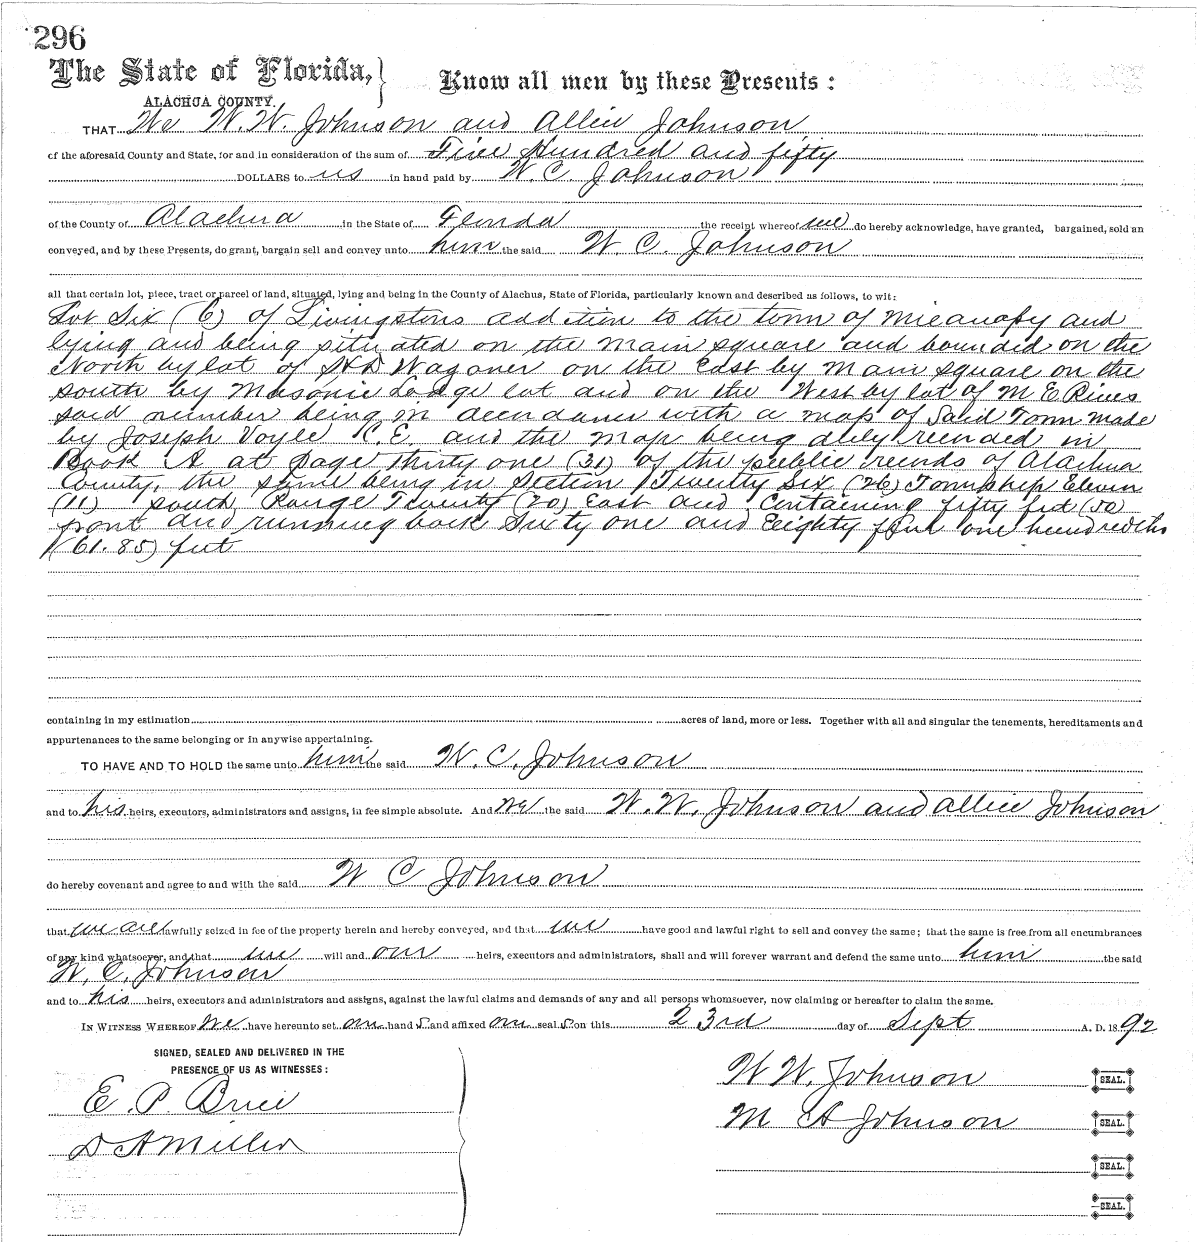 296
The State of Florida,} Know all men by these Presents:
ALACHUA COUNTY.
THAT We W. W. Johnson and Allice Johnson
of the aforesaid County and State, for and in consideration of the sum of Five Hundred and fifty
DOLLARS to us in hand paid by W. C. Johnson
of the County of Alachua in the State of Florida the receipt whereof we do hereby acknowledge, have granted, bargained, sold an
conveyed, and by these Presents, do grant, bargain sell and convey unto him the said W. C. Johnson
all that certain lot, piece, tract or parcel of land, situated, lying and being in the County of Alachus, State of Florida, particularly known and described as follows, to wit:
Lot Six (6) of Livingstons addition to the town of Micanopy and
lying and being situated on the main square and bounded on the
North by lot of Wagoner on the East by Main square on the
south by Masonic Lodge lot and on the West by lot of M E Rives
said number being in accordance with a map of Said Town made
by Joseph Voyle C.E. and the map being recorded in
Book A at page thirty one (31) of the public records of Alachua
County, the same being in Section Twenty Six (26) Township Eleven
(11) south, Range Twenty (20) East and Containing fifty feet (50)
front and running back Sixty one and Eighty one hundredths
(61.85) feet
containing in my estimation acres of land, more or less. Together with all and singular the tenements, hereditaments and
appurtenances to the same belonging or in anywise appertaining.
TO HAVE AND TO HOLD the same unto him the said W. C. Johnson
and to his heirs, executors, administrators and assigns, in fee simple absolute. And we the said W. W. Johnson and Allice Johnson
do hereby covenant and agree to and with the said W C Johnson
that we are lawfully seized in fee of the property herein and hereby conveyed, and that we have good and lawful right to sell and convey the same; that the same is free from all encumbrances
of any kind whatsoever, and that we will and our heirs, executors and administrators, shall and will forever warrant and defend the same unto him the said
W. C. Johnson
and to his heirs, executors and administrators and assigns, against the lawful claims and demands of any and all persons whomsoever, now claiming or hereafter to claim the same.
IN WITNESS WHEREOF We have hereunto set our hand s and affixed our seal s on this 23rd day of Sept A. D. 1892
SIGNED, SEALED AND DELIVERED IN THE
PRESENCE OF US AS WITNESSES:
W W. Johnson SEAL.
E. P. Brice
M A Johnson SEAL.
D A Miller
SEAL.
SEAL.